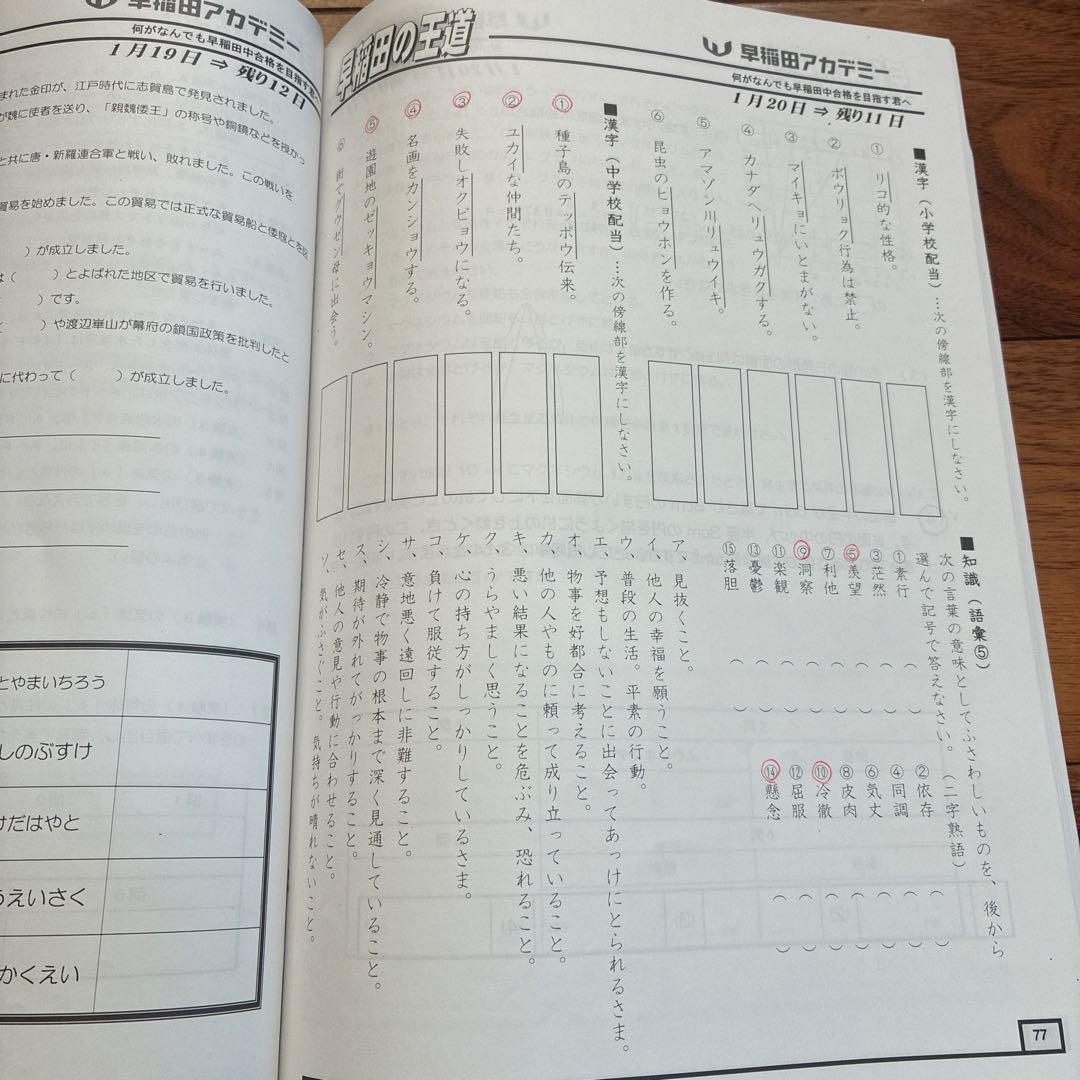 早稲田アカデミー
何がなんでも早稲田中合格を目指す君へ
1月19日 ⇒ 残り12日
まれた金印が、江戸時代に志賀島で発見されました。
が魏に使者を送り、「親魏倭王」の称号や銅鏡などを授かっ
と共に唐・新羅連合軍と戦い、敗れました。この戦いを
貿易を始めました。この貿易では正式な貿易船と倭寇とを区
）が成立しました。
は（　　）とよばれた地区で貿易を行いました。
（　　）です。
（　　）や渡辺崋山が幕府の鎖国政策を批判したと
に代わって（　　）が成立しました。
とやまいちろう
しのぶすけ
けだはやと
うえいさく
かくえい
早稲田の王道
早稲田アカデミー
何がなんでも早稲田中合格を目指す君へ
1月20日 ⇒ 残り11日
■漢字（小学校配当）…次の傍線部を漢字にしなさい。
① リコ的な性格。
② ボウリョク行為は禁止。
③ マイキョにいとまがない。
④ カナダへリュウガクする。
⑤ アマゾン川リュウイキ。
⑥ 昆虫のヒョウホンを作る。
■漢字（中学校配当）…次の傍線部を漢字にしなさい。
① 種子島のテッポウ伝来。
② ユカイな仲間たち。
③ 失敗しオクビョウになる。
④ 名画をカンショウする。
⑤ 遊園地のゼッキョウマシン。
⑥ 街でグウゼン母に出会う。
■知識（語彙⑤）
次の言葉の意味としてふさわしいものを、後から
選んで記号で答えなさい。（二字熟語）
①素行（　　）②依存（　　）
③茫然（　　）④同調（　　）
⑤羨望（　　）⑥気丈（　　）
⑦利他（　　）⑧皮肉（　　）
⑨洞察（　　）⑩冷徹（　　）
⑪楽観（　　）⑫屈服（　　）
⑬憂鬱（　　）⑭懸念（　　）
⑮落胆（　　）
ア、見抜くこと。
イ、他人の幸福を願うこと。
ウ、普段の生活。平素の行動。
エ、予想もしないことに出会ってあっけにとられるさま。
オ、物事を好都合に考えること。
カ、他の人やものに頼って成り立っていること。
キ、悪い結果になることを危ぶみ、恐れること。
ク、うらやましく思うこと。
ケ、心の持ち方がしっかりしているさま。
コ、負けて服従すること。
サ、意地悪く遠回しに非難すること。
シ、冷静で物事の根本まで深く見通していること。
ス、期待が外れてがっかりすること。
セ、他人の意見や行動に合わせること。
ソ、気がふさぐこと。気持ちが晴れないこと。
77